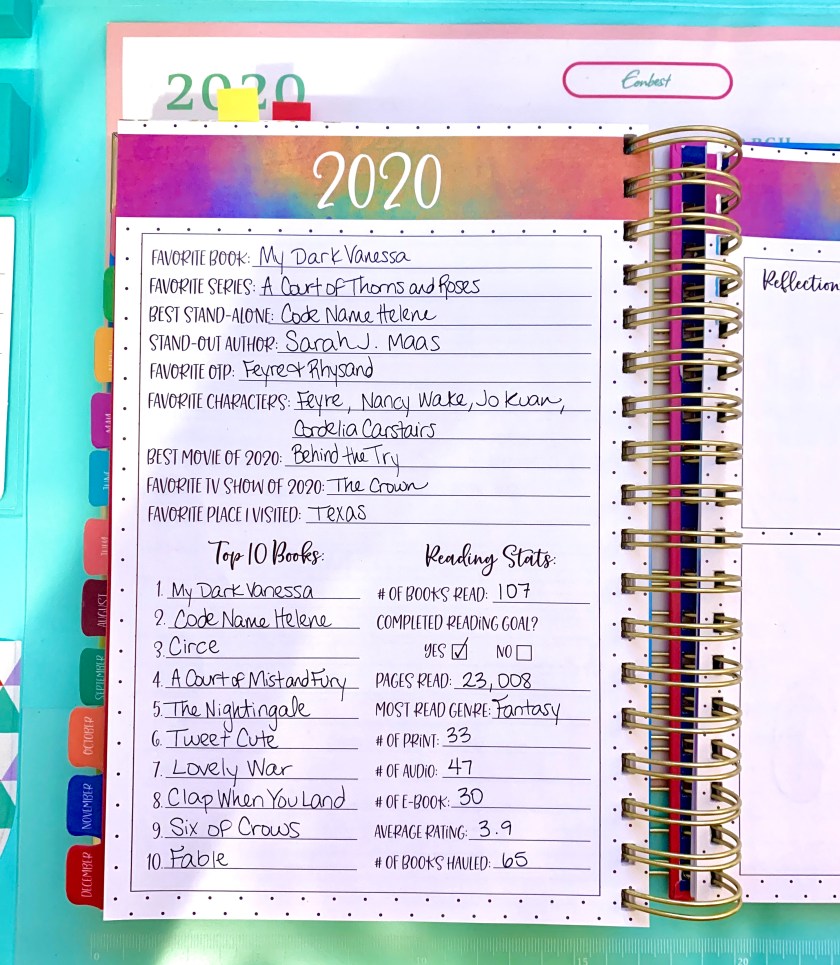 2020
Eenbest
2020
Reflection
FAVORITE BOOK: My Dark Vanessa
FAVORITE SERIES: A Court of Thorns and Roses
BEST STAND-ALONE: Code Name Helene
STAND-OUT AUTHOR: Sarah J. Maas
FAVORITE OTP: Feyre & Rhysand
FAVORITE CHARACTERS: Feyre, Nancy Wake, Jo Kuan,
Cordelia Carstairs
BEST MOVIE OF 2020: Behind the Try
FAVORITE TV SHOW OF 2020: The Crown
FAVORITE PLACE I VISITED: Texas
Top 10 Books:
1. My Dark Vanessa
2. Code Name Helene
3. Circe
4. A Court of Mist and Fury
5. The Nightingale
6. Tweet Cute
7. Lovely War
8. Clap When You Land
9. Six of Crows
10. Fable
Reading Stats:
# OF BOOKS READ: 107
COMPLETED READING GOAL?
YES ☑ NO ☐
PAGES READ: 23,008
MOST READ GENRE: Fantasy
# OF PRINT: 33
# OF AUDIO: 47
# OF E-BOOK: 30
AVERAGE RATING: 3.9
# OF BOOKS HAULED: 65
AUGUST
SEPTEMBER
OCTOBER
NOVEMBER
DECEMBER
15
20